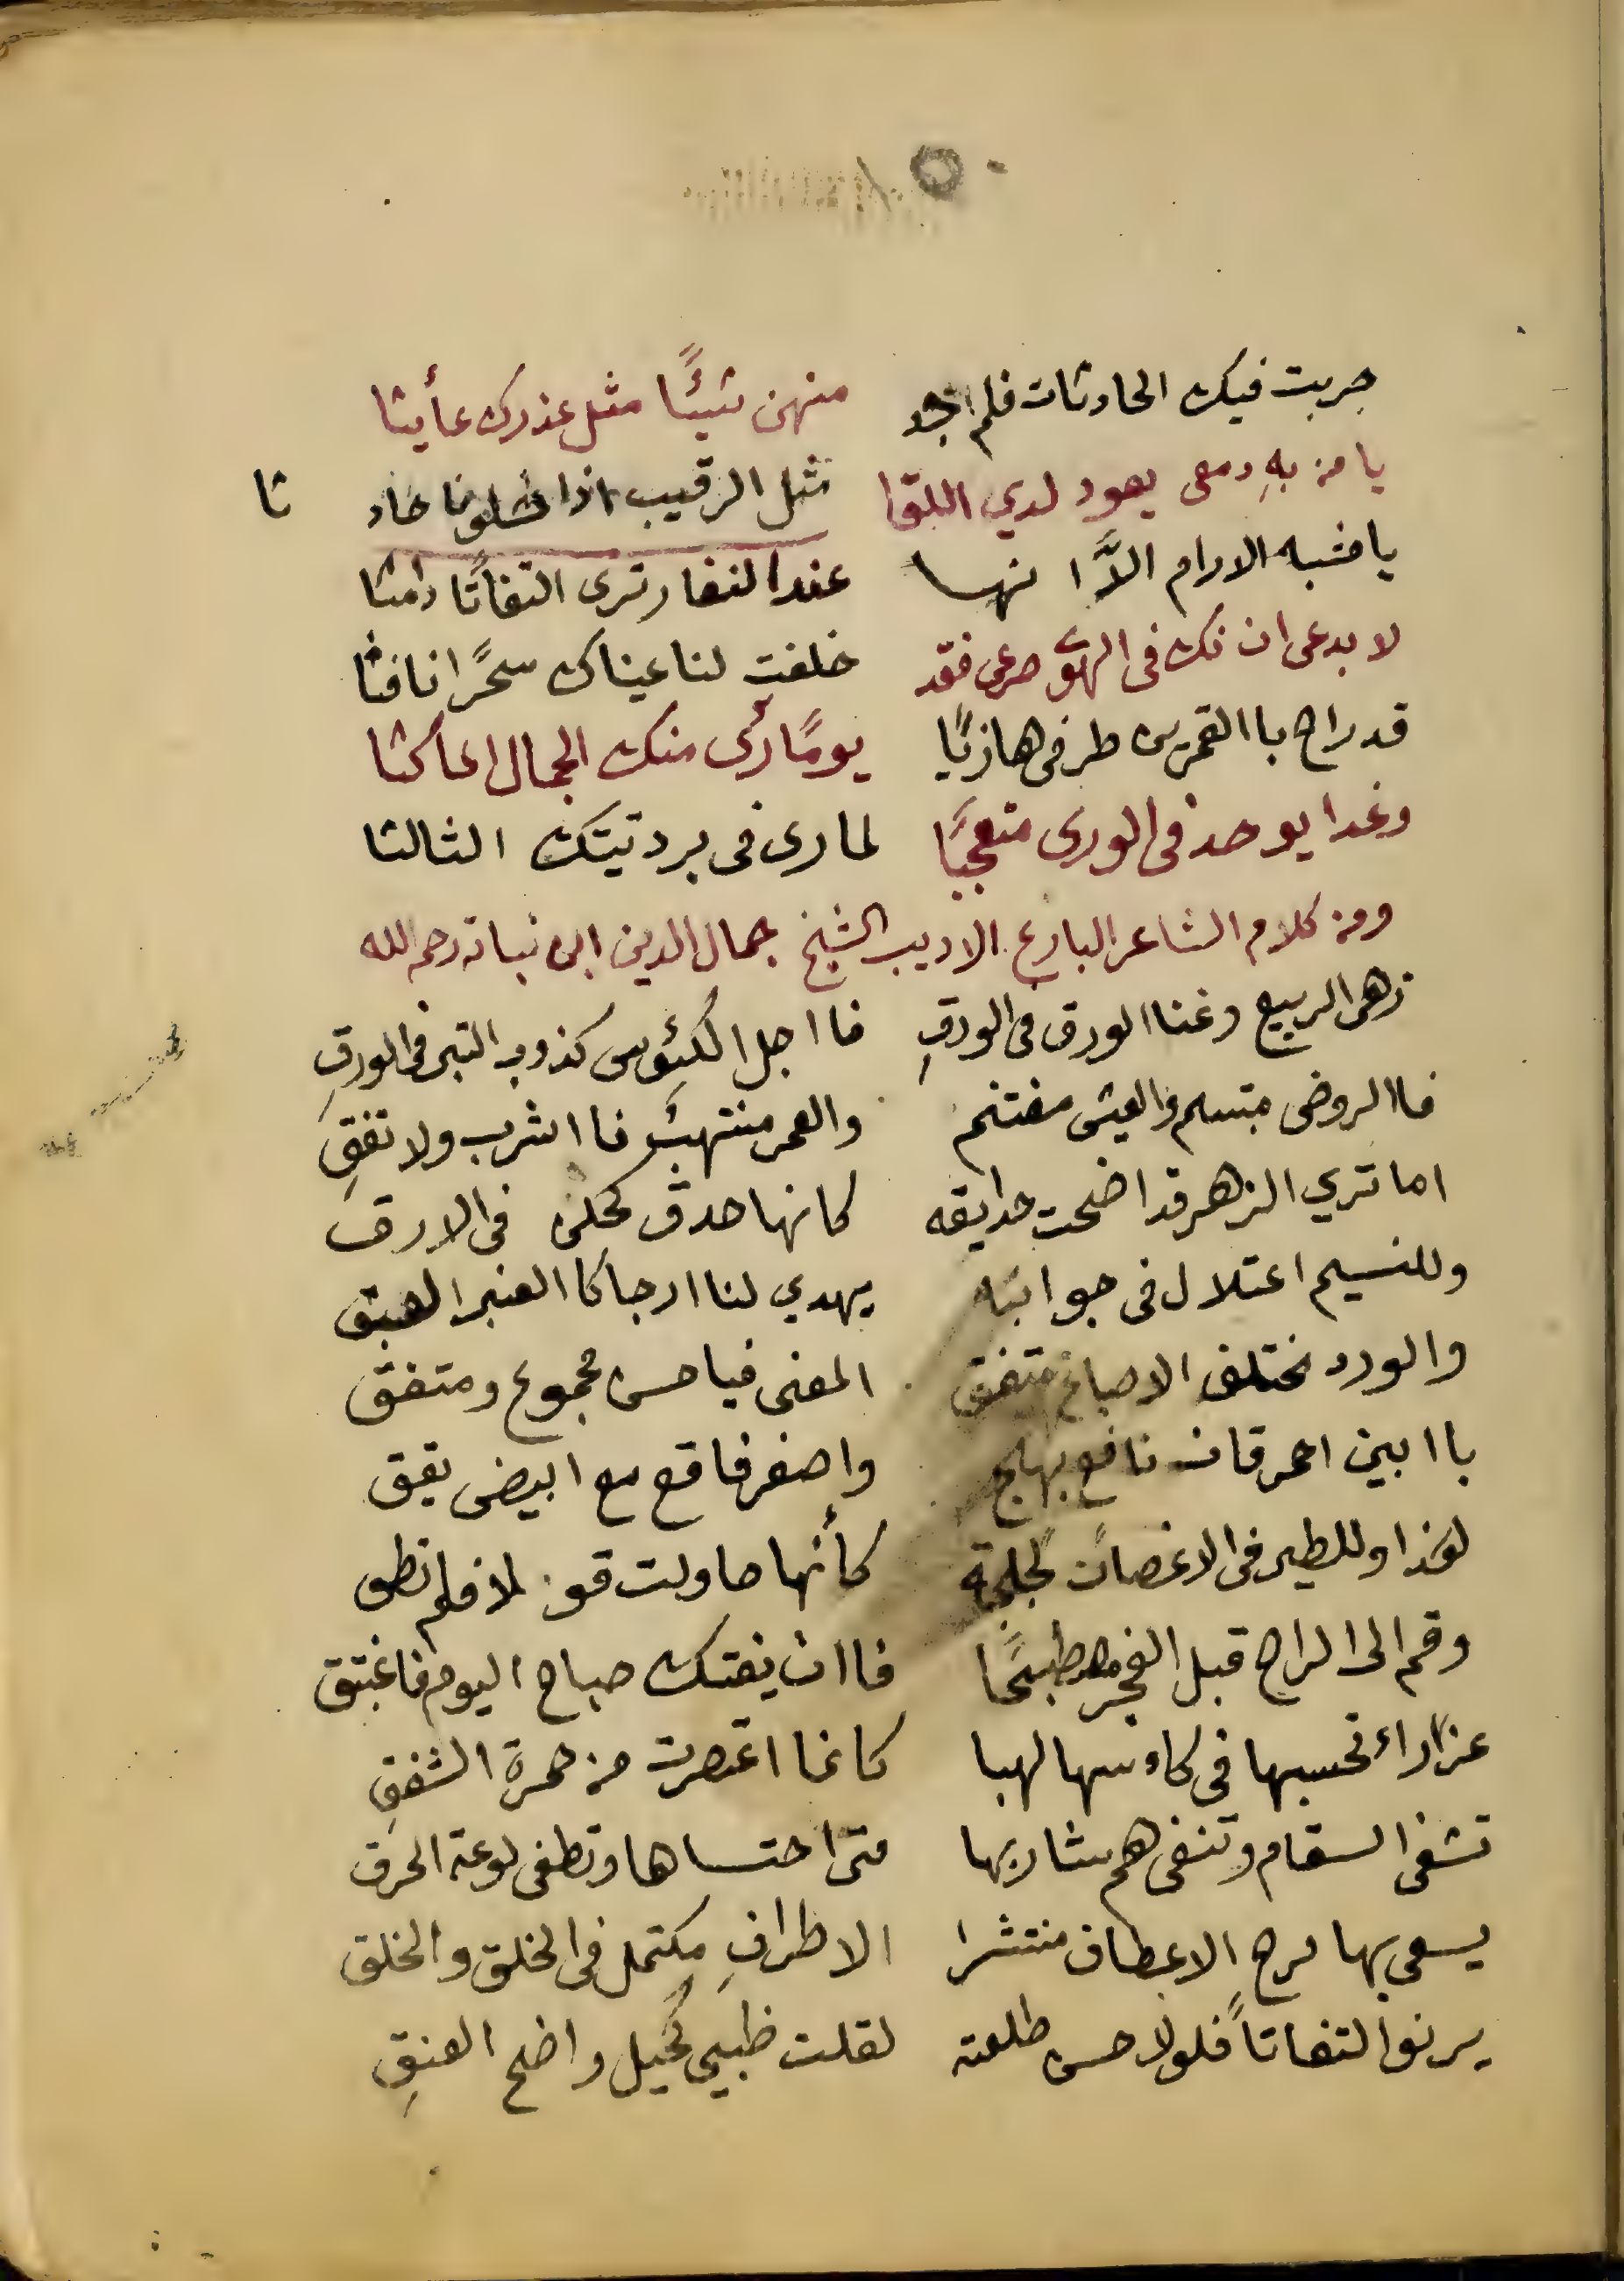 جربت فيك الحادثات فلم اجد منهن شيئًا مثل عذرك عأيثا
يا من بهِ دمعى يعود لدي اللقا مثل الرقيب اذا خلونا حاد ثا
يا مشبه الارام الاَّ انها عند النفار ترى التفاتًا دامثا
لا بدعى ان تك فى الهوى صرعى فقد خلفت لنا عيناك سحرًا نافثا
قد راح باالقمرين طرفى هازيًا يومًا رأى منك الجمال الماكثا
وغدا يوحد فى الورى متعجبًا لما رى فى بردتيتك الثالثا
ومن كلام الشاعر البارع الاديب الشيخ جمال الدين ابن نباته رحم الله
زهى الربيع وغنا الورق فى الورقِ فااجل الكئِوس كذوب التبر فى الورقِ
فاالروض مبتسم والعيش مغتنم والعمر منتهبٌ فااشرب ولا تفقِ
اما تري الزهر قد اضحت حدايقه كانها حدق كحلن فى الارق
وللنسيم اعتلال فى جوانبه يهدي لنا ارجا كاالعنبر العبق
والورد مختلف الاصباغ متفق المعنى فيا حسن مجموع ومتفق
باابين احمر قان نافع بهج واصفر فاقع مع ابيض يقق
لهذا وللطير فى الاغصان لجلجة كأنها حاولت قو لا فلم تطق
وقم الى الراح قبل الفجر مصطبحًا فاان يفتك صباح اليوم فاغتبق
عذراء تحسبها فى كاءسها لهبا كانما اعتصرت من حمرة الشفقِ
تشفى السقام وتنفى هم شاربها متى احتساها وتطفى لوعة الحرق
يسعى بها مرح الاعطاف منتشرا الاطرافِ مكتمل فى الخلق والخلق
يرنو التفاتاً فلولا حسن طلعته لقلت ظبيي كحيل واضح العنقِ